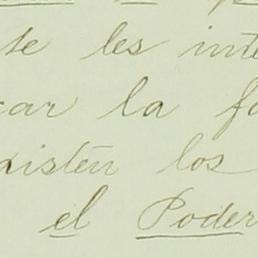 te les inte
car la fo
xisten los
el Poder